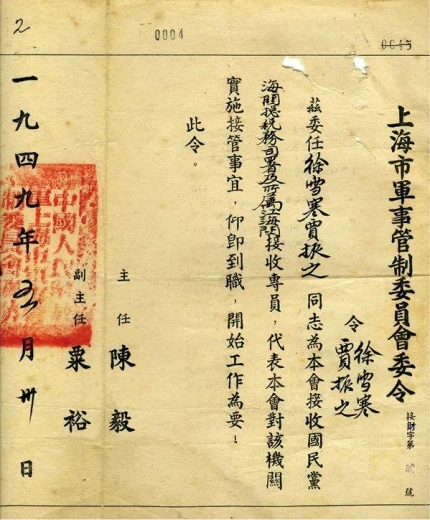 2
0004
0045
上海市軍事管制委員會委令
接財字第 貳 號
令 徐雪寒
賈振之
茲委任徐雪寒賈振之同志為本會接收國民黨
海關總稅務司署及所屬江海關接收專員，代表本會對該機關
實施接管事宜，仰即到職，開始工作為要！
此令。
主任 陳毅
副主任 粟裕
一九四九年五月卅日
中國人民